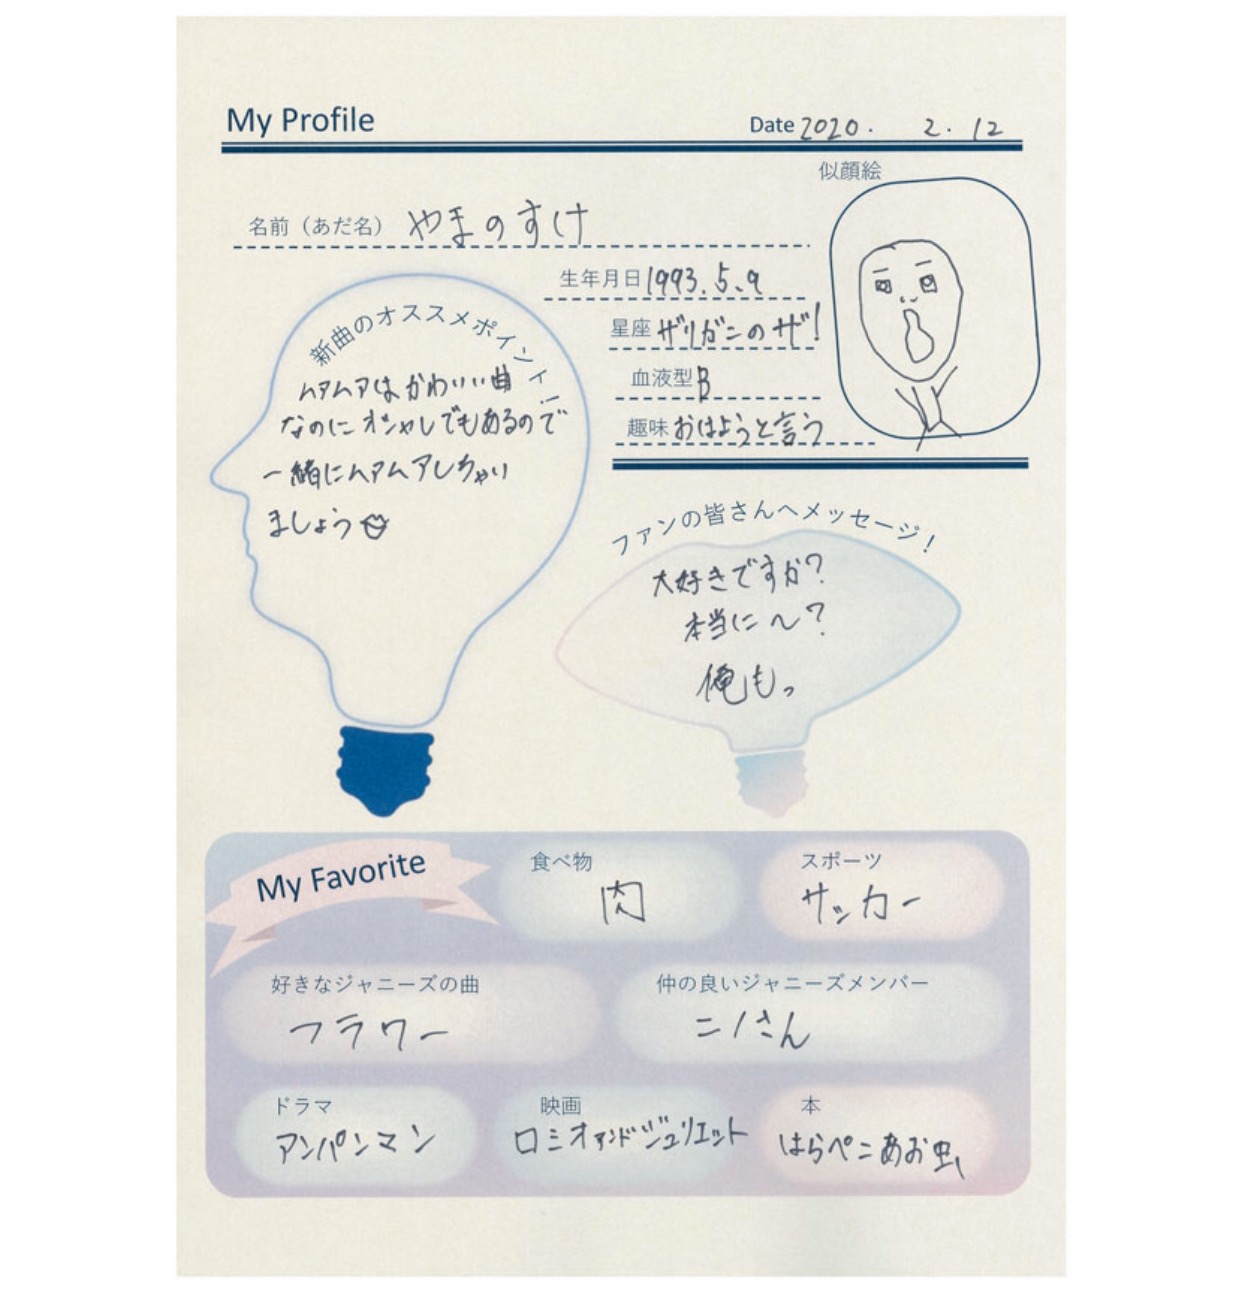 My Profile
Date 2020. 2. 12
似顔絵
名前（あだ名） やまのすけ
生年月日 1993.5.9
星座 ザリガニのザ!
血液型 B
趣味 おはようと言う
新曲のオススメポイント!
ムアムアはかわいい曲
なのにオシャレでもあるので
一緒にムアムアしちゃい
ましょう
ファンの皆さんへメッセージ!
大好きですか?
本当に〜?
俺も。
My Favorite
食べ物
肉
スポーツ
サッカー
好きなジャニーズの曲
フラワー
仲の良いジャニーズメンバー
ニノさん
ドラマ
アンパンマン
映画
ロミオアンドジュリエット
本
はらぺこあお虫